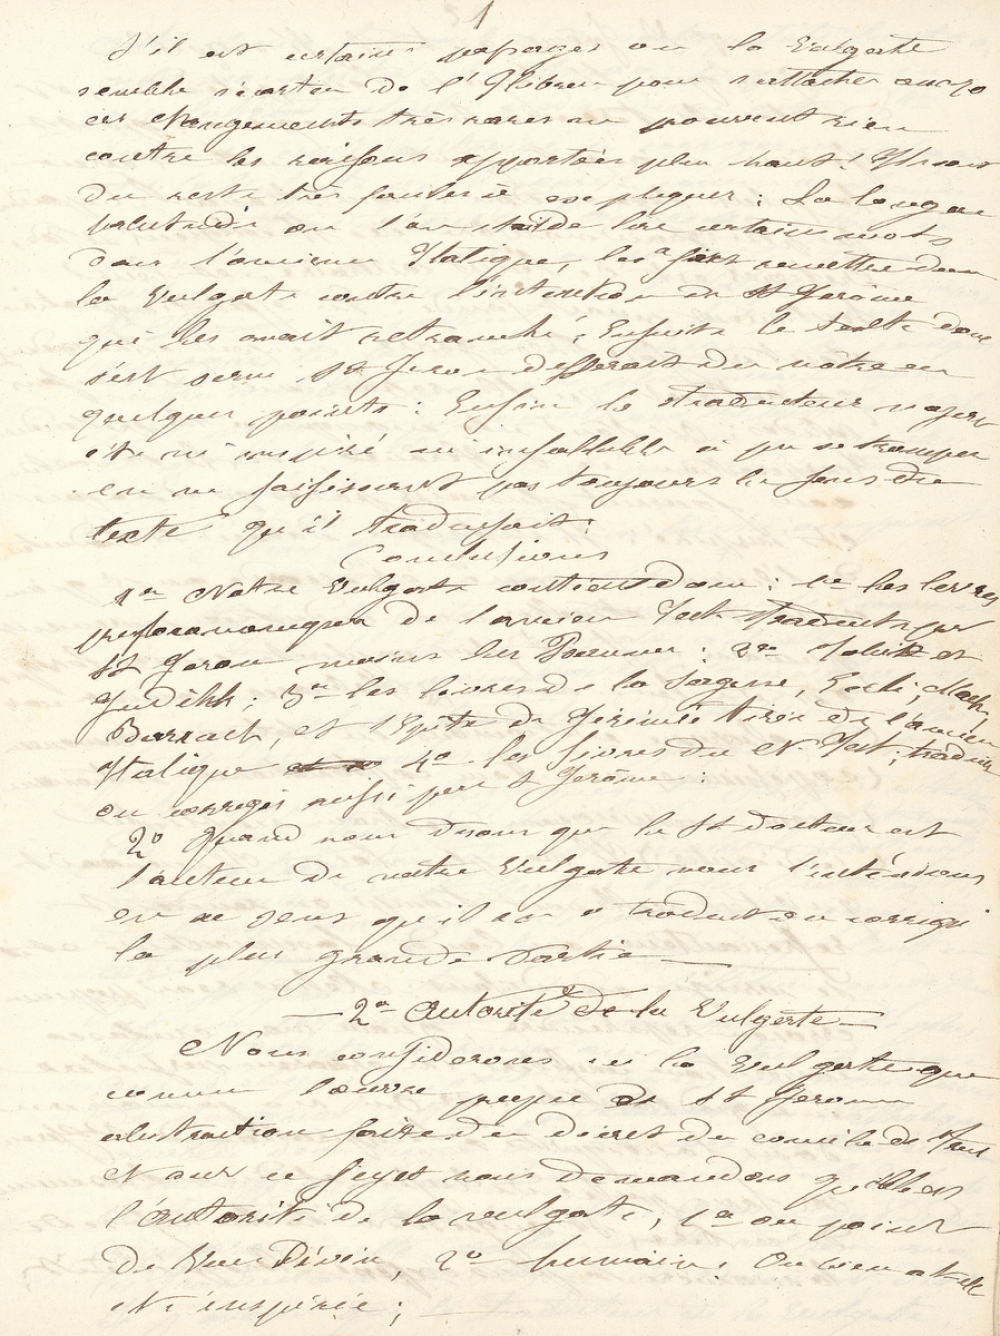 1
S'il est certains passages ou la Vulgate
semble s'écarter de l'Hébreu pour s'attacher aux 70
ces changements très rares ne peuvent rien
contre les raisons apportées plus haut! Ils sont
du reste très faciles à expliquer : La longue
habitude ou l'on était de lire certains mots
dans l'ancienne Italique, les a fait remettre dans
la Vulgate contre l'intention de St Jérôme
qui les avait retranché ; Ensuite le texte dont
s'est servi St Jerome differait du notre en
quelques points : Enfin le traducteur n'ayant
été ni inspiré ni infaillible a pu se tromper
en ne saisissant pas toujours le sens du
texte qu'il traduisait.
Conclusions
1º Notre Vulgate contient donc : 1º les livres
protocanoniques de l'ancien Test. traduits par
St Jerome moins les Psaumes ; 2º Tobie et
Judith ; 3º les livres de la Sagesse, Eccli, Mach,
Barruch, et l'Epitre de Jérémie tirés de l'ancien
Italique 4º les livres du N. Test. ; traduits
ou corrigés aussi par St Jerôme :
2º Quand nous disons que le St docteur est
l'auteur de notre Vulgate nous l'entendons
en ce sens qu'il en a traduit ou corrigé
la plus grande Partie —
— 2º Autorité de la Vulgate —
Nous considerons ici la Vulgate que
comme l'œuvre propre de St Jerome
abstraction faite du décret du concile de Trente
et sur ce sujet nous demandons quelle est
l'autorité de la vulgate, 1º au point
de Vue Divin, 2º humain. Ou bien a-t-elle
été inspirée ;